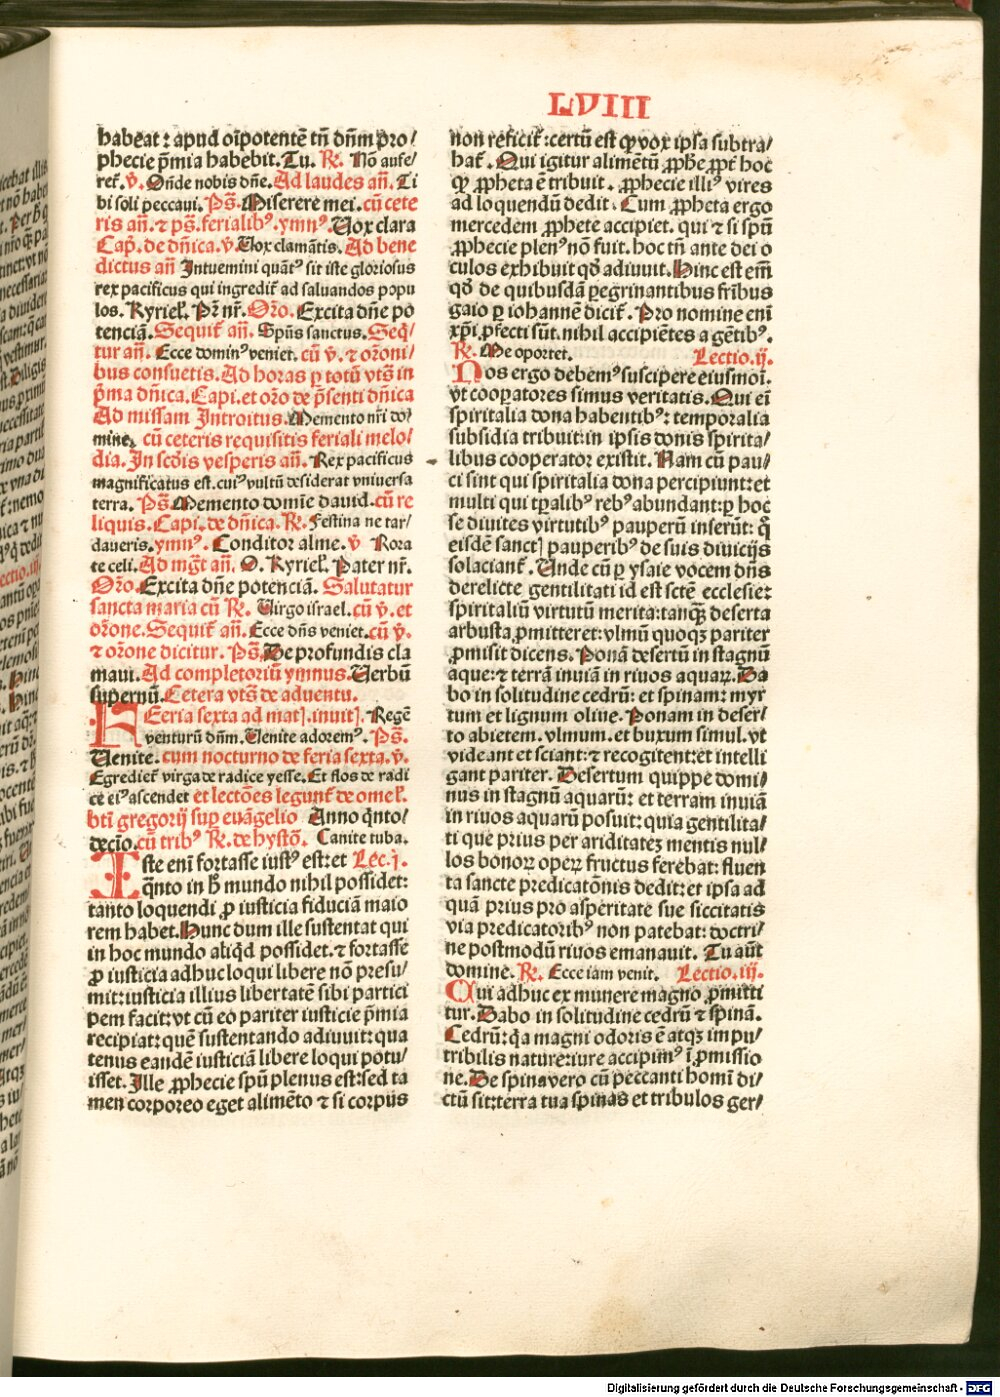 LVIII
habeat: apud oĩpotentẽ tñ dñm pro/
phecie p̃mia habebit. Tu. R̷. Nõ aufe/
ret̃. v̷. Oñde nobis dñe. Ad laudes añ. Ti
bi soli peccaui. Ps̃. Miserere mei. cũ cete
ris añ. ⁊ ps̃. ferialibꝰ. ymnꝰ. Uox clara
Cap̃. de dñica. v̷. Uox clamãtis. Ad bene
dictus añ Intuemini quãtꝰ sit iste gloriosus
rex pacificus qui ingredit̃ ad saluandos popu
los. Kyriel̃. Pr̃ nr̃. Or̃o. Excita dñe po
tenciã. Sequit̃ añ. Sp̃us sanctus. Seq̃/
tur añ. Ecce dominꝰ veniet. cũ v̷. ⁊ or̃oni/
bus consuetis. Ad horas ꝑ totũ vts̃ in
p̃ma dñica. Capi. et or̃o de p̃senti dñica
Ad missam Introitus. Memento nr̃i do/
mine. cũ ceteris requisitis feriali melo/
dia. In scd̃is vesperis añ. Rex pacificus
magnificatus est. cuiꝰ vultũ desiderat vniuersa
terra. Ps̃. Memento domĩe dauid. cũ re
liquis. Capi. de dñica. R̷. Festina ne tar/
daueris. ymnꝰ. Conditor alme. v̷ Rora
te celi. Ad mg̃t añ. O. Kyriel̃. Pater nr̃.
Or̃o. Excita dñe potenciã. Salutatur
sancta maria cũ R̷. Uirgo israel. cũ v̷. et
or̃one. Sequit̃ añ. Ecce dñs veniet. cũ v̷.
⁊ or̃one dicitur. Ps̃. De profundis cla
maui. Ad completoriũ ymnus. Uerbũ
supernũ. Cetera vts̃ de aduentu.
Feria sexta ad matꝭ. inuitꝭ. Regẽ
venturũ dñm. Uenite adoremꝰ. Ps̃.
Uenite. cum nocturno de feria sexta. v̷.
Egrediet̃ virga de radice yesse. Et flos de radi
ce eiꝰ ascendet et lectões legunt̃ de omel̃.
bti gregorij sup euãgelio Anno q̃nto/
decĩo. cũ tribꝰ R̷. de hystõ. Canite tuba.
Iste enĩ fortasse iustꝰ est: et Lec. j.
q̃nto in h̃ mundo nihil possidet:
tanto loquendi ꝓ iusticia fiduciã maio
rem habet. Hunc dum ille sustentat qui
in hoc mundo aliq̃d possidet. ⁊ fortasse
ꝓ iusticia adhuc loqui libere nõ presu/
mit: iusticia illius libertatẽ sibi partici
pem facit: vt cũ eo pariter iusticie p̃mia
recipiat: quẽ sustentando adiuuit: qua
tenus eandẽ iusticiã libere loqui potu/
isset. Ille ꝓphecie sp̃u plenus est: sed ta
men corporeo eget alimẽto ⁊ si corpus
non reficit̃: certũ est ꝙ vox ipsa subtra/
hat̃. Qui igitur alimẽtũ ꝓph̃e ꝓpt̃ hoc
ꝙ ꝓpheta ẽ tribuit. ꝓphecie illiꝰ vires
ad loquendũ dedit. Cum ꝓpheta ergo
mercedem ꝓphete accipiet. qui ⁊ si sp̃u
ꝓphecie plenꝰ nõ fuit. hoc tñ ante dei o
culos exhibuit qd̃ adiuuit. Hinc est em̃
qd̃ de quibusdã ꝑegrinantibus fr̃ibus
gaio ꝑ iohannẽ dicit̃. Pro nomine enĩ
xp̃i ꝓfecti sũt. nihil accipiẽtes a gẽtibꝰ.
R̷. Me oportet. Lectio. ij.
Nos ergo debemꝰ suscipere eiusmoĩ.
vt cooperatores simus veritatis. Qui eĩ
spiritalia dona habentibꝰ: temporalia
subsidia tribuit: in ipsis donis spirita/
libus cooperator existit. Nam cũ pau/
ci sint qui spiritalia dona percipiunt: et
multi qui tꝑalibꝰ rebꝰ abundant: ꝑ hoc
se diuites virtutibꝰ pauperũ inserũt: q̃
eisdẽ sanctꝭ pauperibꝰ de suis diuicijs
solaciant̃. Unde cũ ꝑ ysaie vocem dñs
derelicte gentilitati id est sctẽ ecclesie:
spiritaliũ virtutũ merita: tanq̃ȝ deserta
arbusta ꝓmitteret: vlmũ quoqȝ pariter
ꝓmisit dicens. Ponã desertũ in stagnũ
aque: ⁊ terrã inuiã in riuos aquaꝝ. Da
bo in solitudine cedrũ: et spinam: myr
tum et lignum oliue. Ponam in deser/
to abietem. vlmum. et buxum simul. vt
videant et sciant: ⁊ recogitent: et intelli
gant pariter. Desertum quippe domi/
nus in stagnũ aquarũ: et terram inuiã
in riuos aquarũ posuit: quia gentilita/
ti que prius per ariditateȝ mentis nul/
los bonoꝝ opeꝝ fructus ferebat: fluen
ta sancte predicatõnis dedit: et ipsa ad
quã prius pro asperitate sue siccitatis
via predicatoribꝰ non patebat: doctri/
ne postmodũ riuos emanauit. Tu aũt
domine. R̷. Ecce iam venit. Lectio. iij.
Qui adhuc ex munere magno ꝓmitti
tur. Dabo in solitudine cedrũ ⁊ spinã.
Cedrũ: q̃a magni odoris ẽ atqȝ impu/
tribilis nature: iure accipimꝰ ĩ ꝓmissio
ne. De spina vero cũ peccanti homĩ di/
ctũ sit: terra tua spinas et tribulos ger/
Digitalisierung gefördert durch die Deutsche Forschungsgemeinschaft - DFG